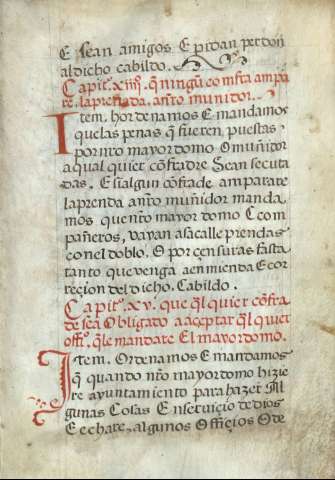 E sean amigos E pidan perdon
al dicho cabildo.
Capitº. xiiijº. q̃ ningũ cõfrã ampa
re. la prenda. a nr̃o muñidor.
Item, hordenamos E mandamos
que las penas q̃ fueren, puestas,
por nr̃o mayordomo O muñidor
a qual quier cõfradre Sean secuta
das. E si algun cõfrade. amparare
la prenda a nr̃o muñidor manda
mos que nr̃o mayordomo E com
pañeros, vayan a sacalle prendas
con el doblo. O por censuras fasta
tanto que venga a enmienda E cor
reçion del dicho. Cabildo.
Capitº. xv. que q̃l quier cõfra
de seã Obligado a açeptar q̃l quier
offiº. q̃ le mandare El mayordomo.
Item. Ordenamos E mandamos
q̃ quando nr̃o mayordomo hizie
re ayuntamiento para hazer Al
gunas Cosas En serviçio de dios
E echare, algunos Offiçios O de